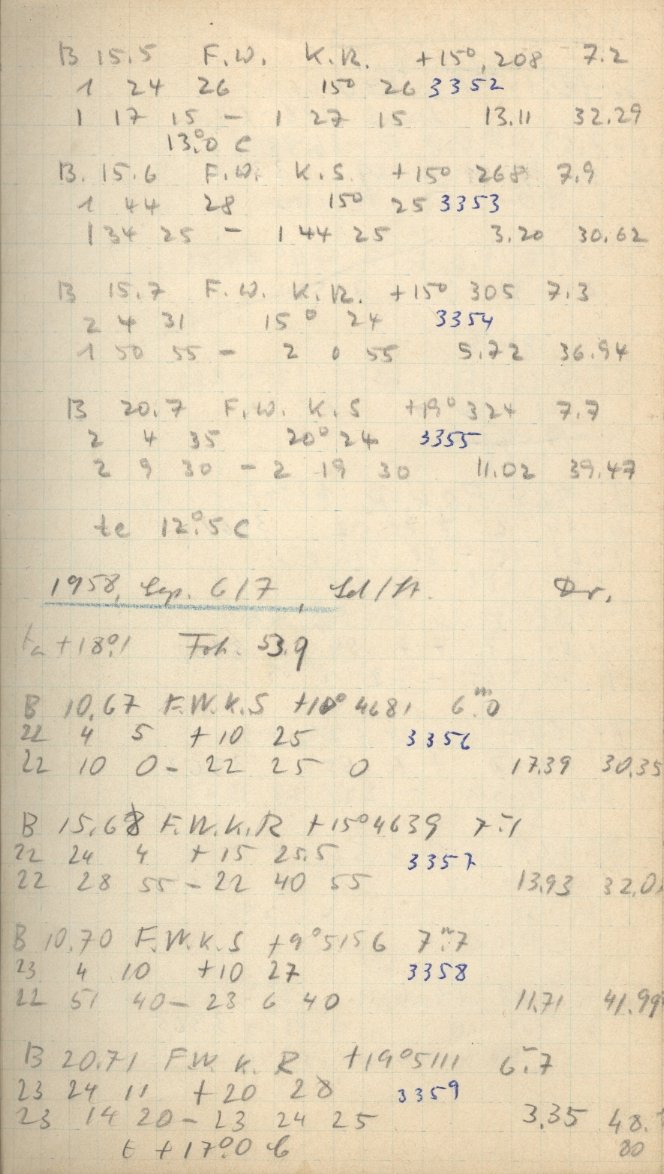 B 15.5 F.W. K.R. +15° 208 7.2
1 24 26 15° 26 3352
1 17 15 - 1 27 15 13.11 32.29
13°.0 C
B. 15.6 F.W. K.S. +15° 268 7.9
1 44 28 15° 25 3353
1 34 25 - 1 44 25 3.20 30.62
B 15.7 F.W. K.R. +15° 305 7.3
2 4 31 15° 24 3354
1 50 55 - 2 0 55 5.72 36.94
B 20.7 F.W. K.S +19° 324 7.7
2 4 35 20° 24 3355
2 9 30 - 2 19 30 11.02 39.47
te 12°.5 C
1958, Sep. 6/7,
ta +18°.1 53.9
B 10.67 F.W.K.S +10° 4681 6.m0
22 4 5 +10 25 3356
22 10 0 - 22 25 0 17.39 30.35
B 15.68 F.W.K.R +15° 4639 7.1
22 24 4 + 15 25.5 3357
22 28 55 - 22 40 55 13.93
B 10.70 F.W.K.S +9° 5156 7.m7
23 4 10 +10 27 3358
22 51 40 - 23 6 40 11.71 41.99
B 20.71 F.W.K.R +19° 5111 6.7
23 24 11 +20 28 3359
23 14 20 - 23 24 25 3.35 48.
t +17°.0 C 80